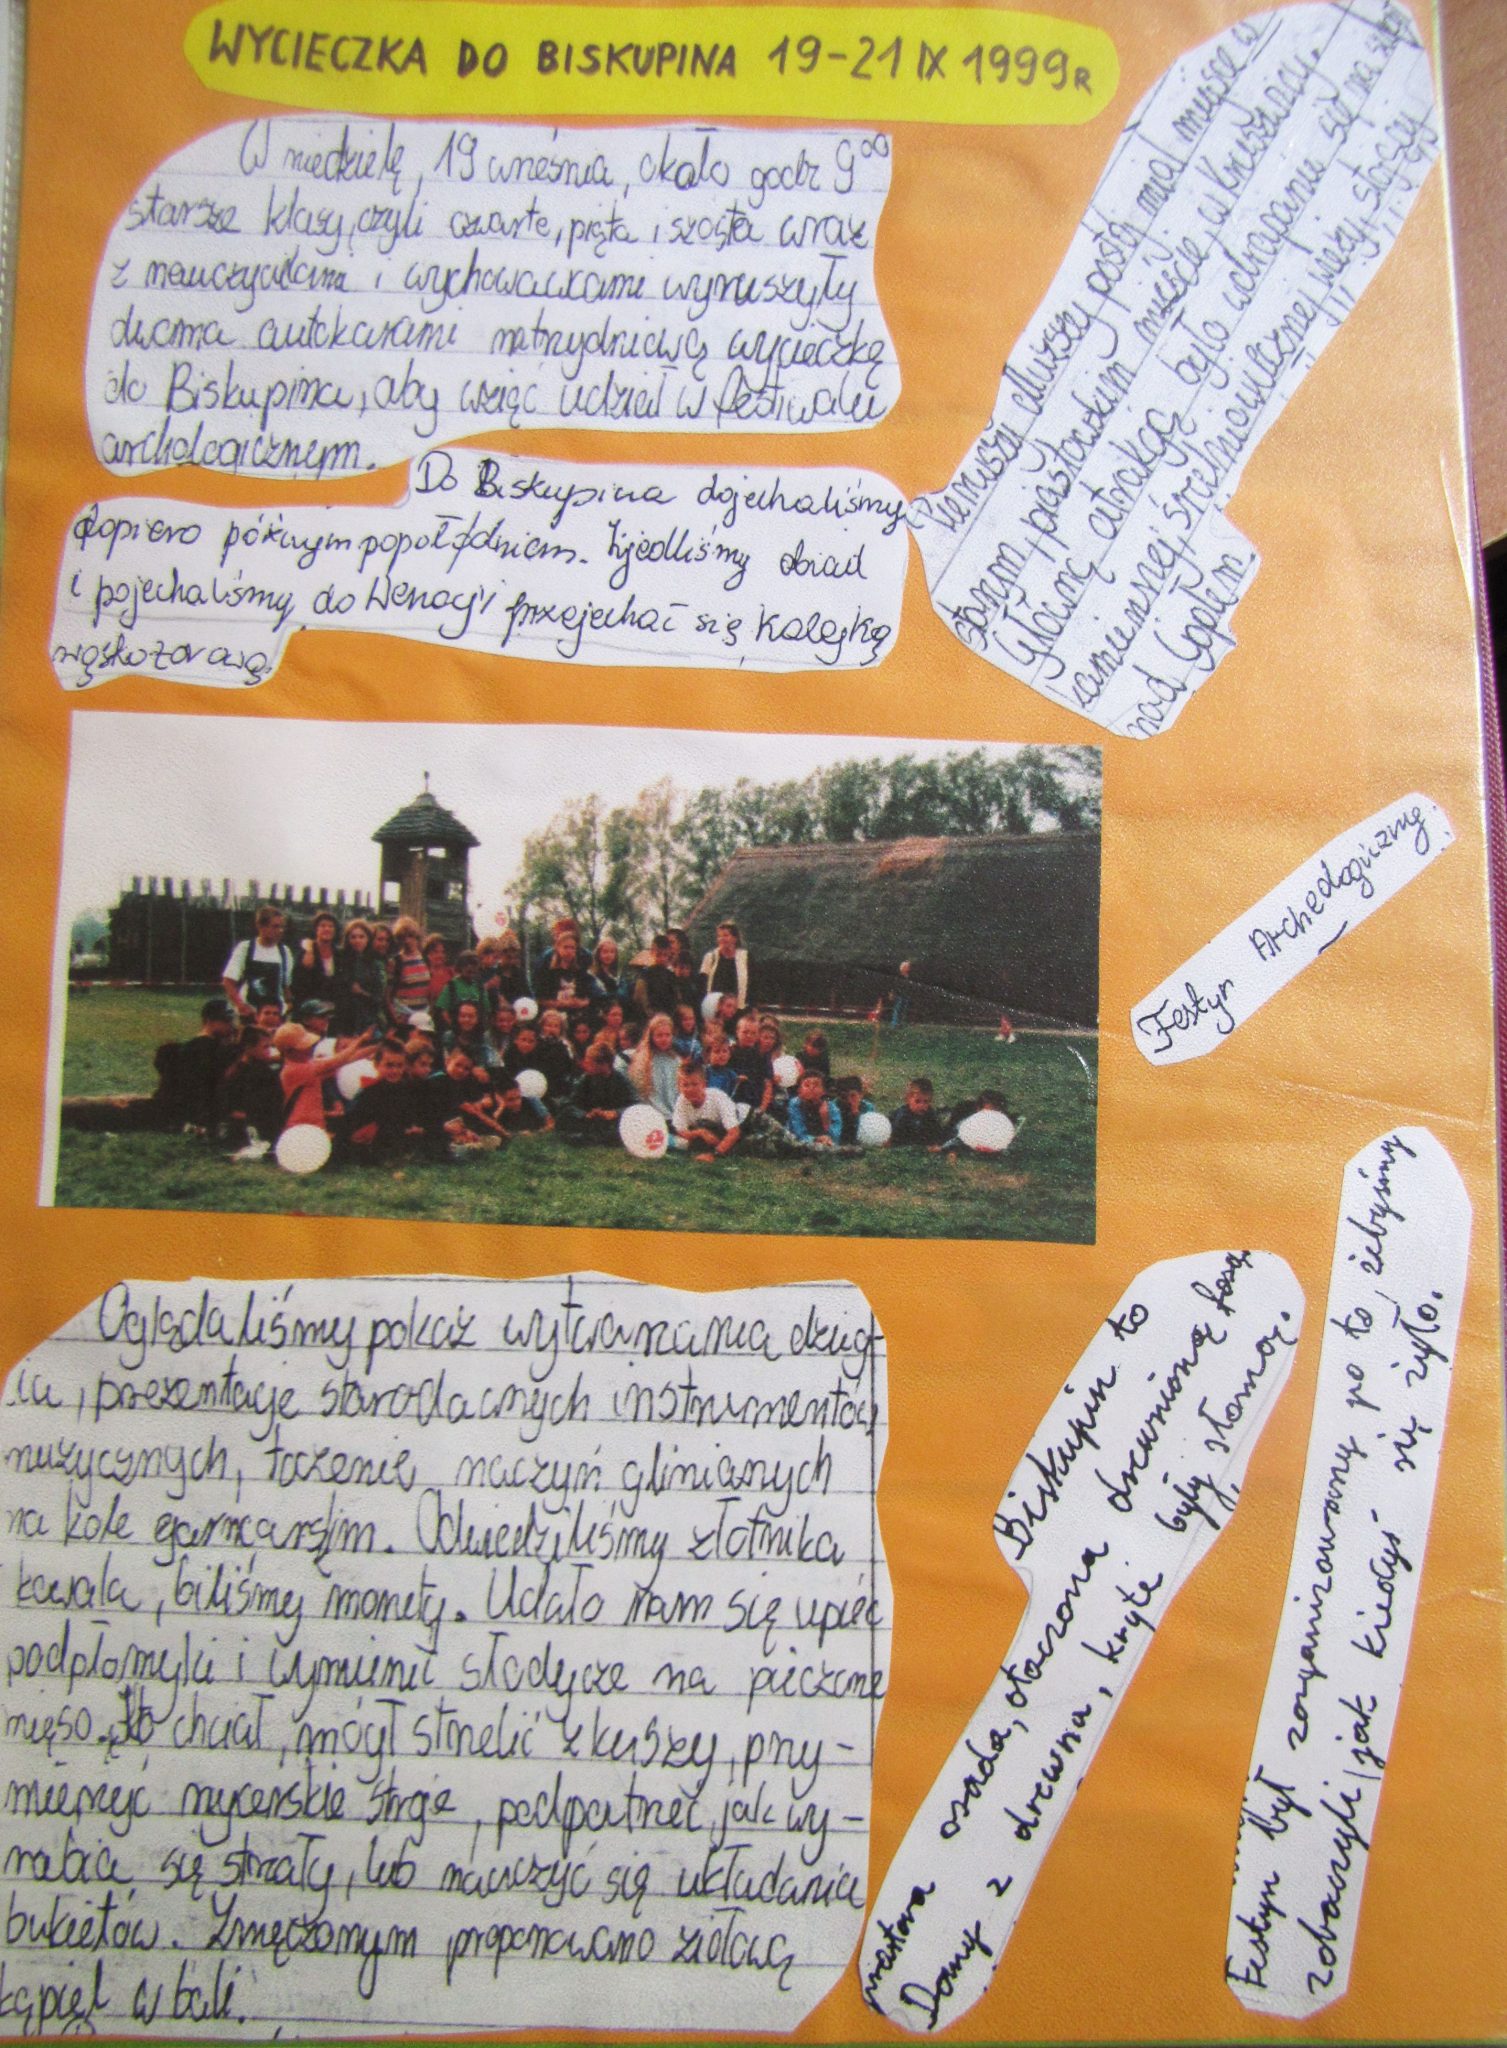 WYCIECZKA DO BISKUPINA 19-21 IX 1999R
W niedzielę, 19 września, około godz 9⁰⁰
starsze klasy, czyli czwarte, piąta i szósta wraz
z nauczycielami i wychowawczami wyruszyły
dwoma autokarami na trzydniową wycieczkę
do Biskupina, aby wziąć udział w festiwalu
archologicznym.
Pierwszy dłuższy postój miał miejsce w
starym, piastowskim mieście, w Kruszwicy.
Główną atrakcją było wdrapanie się na szczyt
kamiennej, średniowiecznej wieży, stojącej
nad Gopłem.
Do Biskupina dojechaliśmy
dopiero późnym popołudniem. Zjedliśmy obiad
i pojechaliśmy do Wenecji przejechać się kolejką
wąskozorową.
Festyn Archeologiczny.
Oglądaliśmy pokaz wytwarzania dzieg-
ciu, prezentację starodawnych instrumentów
muzycznych, toczenie naczyń glinianych
na kole garncarskim. Odwiedziliśmy złotnika
kowala, biliśmy monety. Udało nam się upiec
podpłomyki i wymienić słodycze na pieczone
mięso. Kto chciał, mógł strzelić z kuszy, przy-
mierzyć rycerskie stroje, podpatrzeć, jak wy-
rabia się strzały, lub nauczyć się układania
bukietów. Zmęczonym proponowano ziołową
kąpiel w bali.
Biskupin to
prastara osada, otoczona drewnianą fosą.
Domy z drewna, kryte były słomą.
Festyn był zorganizowany po to, żebyśmy
zobaczyli, jak kiedyś się żyło.